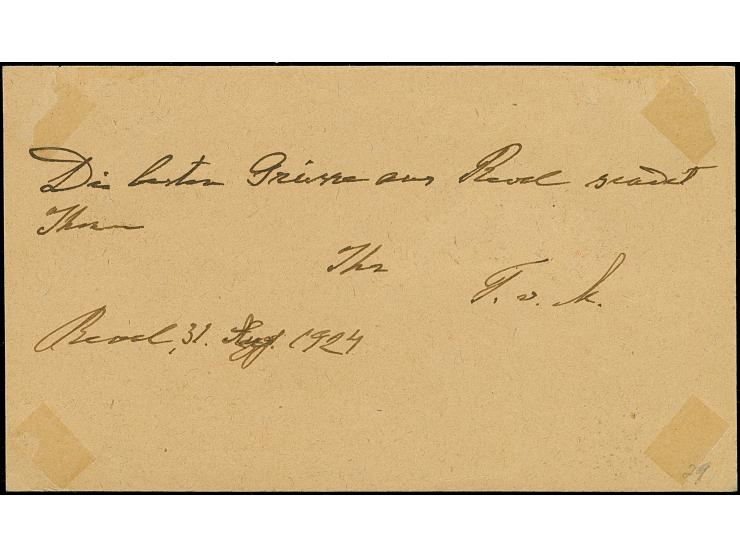 Die besten Grüsse aus Reval sendet
Ihnen
Ihr
F. v. M.
Reval, 31. Aug. 1924
29